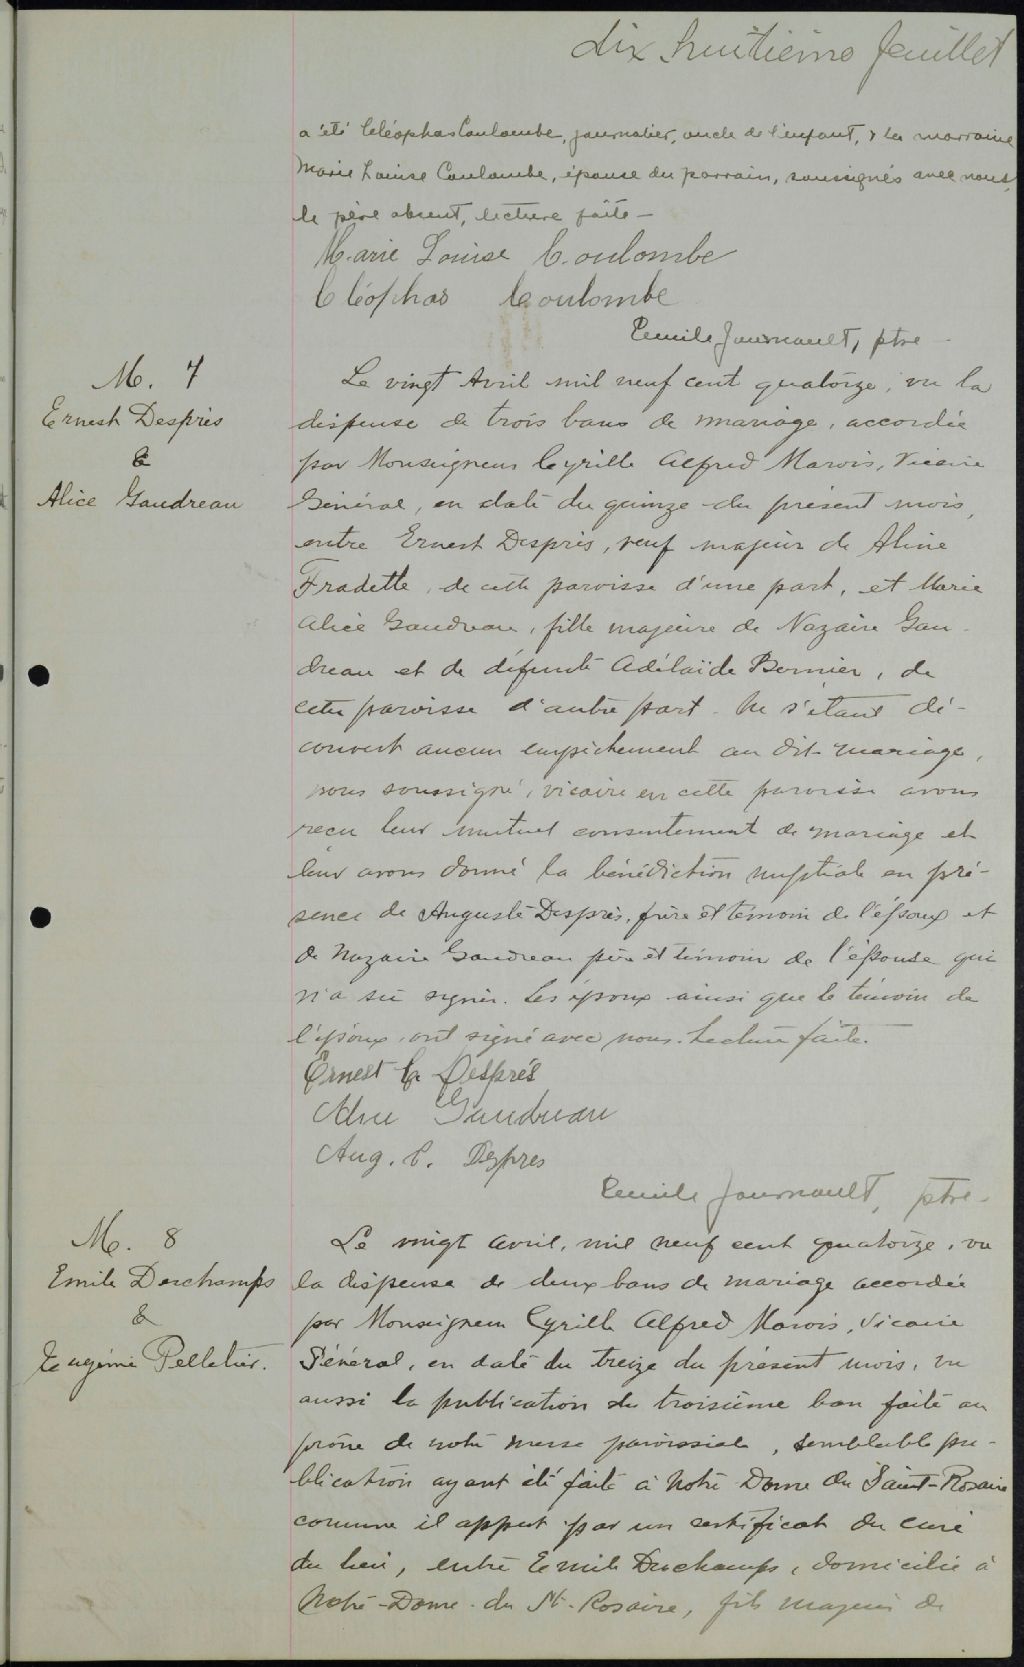 dix huitième feuillet
a été Cléophas Coulombe, journalier, oncle de l'enfant, & la marraine
Marie Louise Coulombe, épouse du parrain, soussignés avec nous,
le père absent, lecture faite —
Marie Louise Coulombe
Cléophas Coulombe
Emile Journault, ptre
M. 7
Ernest Després
&
Alice Gaudreau
Le vingt Avril mil neuf cent quatorze, vu la
dispense de trois bans de mariage, accordée
par Monseigneur Cyrille Alfred Marois, Vicaire
Général, en date du quinze du présent mois,
entre Ernest Després, veuf majeur de Aline
Fradette, de cette paroisse d'une part, et Marie
Alice Gaudreau, fille majeure de Nazaire Gau-
dreau et de défunte Adélaïde Bernier, de
cette paroisse d'autre part. Ne s'étant dé-
couvert aucun empêchement au dit mariage,
nous soussigné, vicaire en cette paroisse avons
reçu leur mutuel consentement de mariage et
leur avons donné la bénédiction nuptiale en pré-
sence de Auguste Després, frère et témoin de l'époux et
de Nazaire Gaudreau père et témoin de l'épouse qui
n'a su signer. Les époux ainsi que le témoin de
l'époux, ont signé avec nous. Lecture faite.
Ernest C. Després
Alice Gaudreau
Aug. C. Despres
Emile Journault, ptre
M. 8
Emile Deschamps
&
Eugénie Pelletier.
Le vingt avril, mil neuf cent quatorze, vu
la dispense de deux bans de mariage accordée
par Monseigneur Cyrille Alfred Marois, Vicaire
Général, en date du treize du présent mois, vu
aussi la publication du troisième ban faite au
prône de notre messe paroissiale, semblable pu-
blication ayant été faite à Notre Dame du Saint-Rosaire
comme il appert par un certificat du curé
du lieu, entre Emile Deschamps, domicilié à
Notre-Dame-du St-Rosaire, fils majeur de